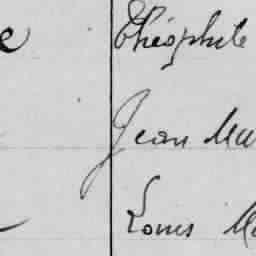 Théophile
Jean Ma
Louis Ma